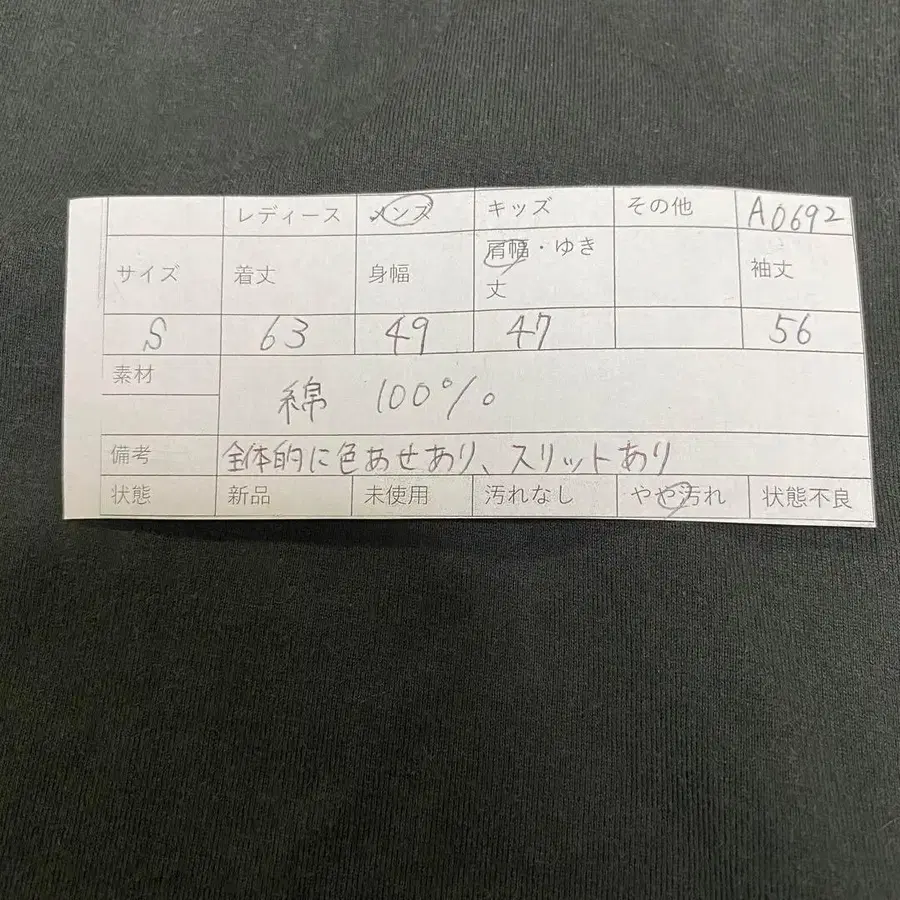 レディース メンズ キッズ その他 A0692
サイズ 着丈 身幅 肩幅・ゆき丈 袖丈
S 63 49 47 56
素材 綿 100%
備考 全体的に色あせあり、スリットあり
状態 新品 未使用 汚れなし やや汚れ 状態不良